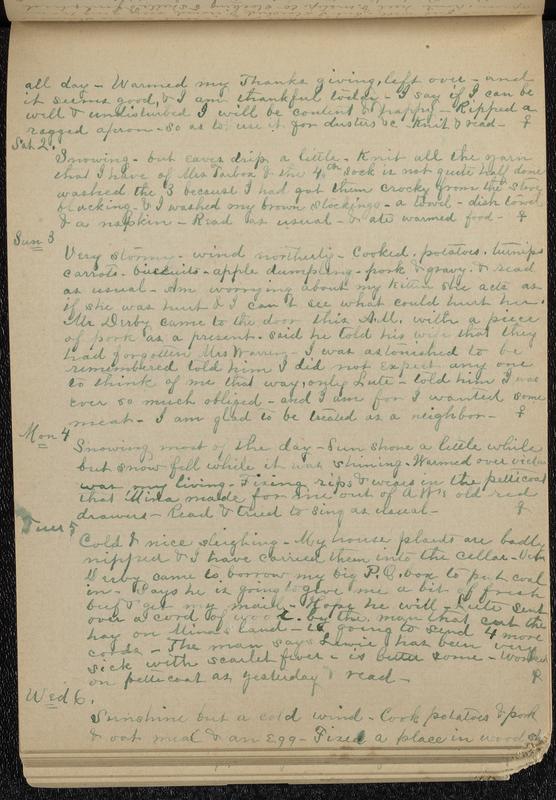 all day - Warmed my Thanks giving, left over - and
it seems good, & I am thankful today - I say if I can be
well & undisturbed I will be content & happy - Ripped a
ragged apron - so as to use it for dusters &c - Knit & read - ♀
Sat 2.
Snowing - but eaves drip a little - Knit all the yarn
that I have of Mrs Tarbox & the 4th sock is not quite half done
washed the 3 because I had got them crocky from the stove
blacking - & I washed my brown stockings - a towel - dish towel
& a napkin - Read as usual - & ate warmed food - ♀
Sun 3
Very stormy - wind northerly - Cooked, potatoes, turnips
carrots - biscuits - apple dumpling - pork & gravy. & read
as usual - Am worrying about my kitten she acts as
if she was hurt & I can't see what could hurt her.
Mr Derby came to the door this A.M. with a piece
of pork as a present. said he told his wife that they
had forgotten Mrs Warren - I was astonished to be
remembered told him I did not expect any one
to think of me that way, only Lute - told him I was
ever so much obliged - and I am for I wanted some
meat - I am glad to be treated as a neighbor - ♀
Mon 4
Snowing most of the day - Sun shone a little while
but snow fell while it was shining - Warmed over
was my living - Fixing rips & in the petticoat
that Mina made for me out of old red
drawers - Read & tried to sing as usual - ♀
Tues 5
Cold & nice sleighing - My house plants are badly
nipped & I have carried them into the cellar -
Derby came to borrow my big P.O. box to put coal
in - Says he is going to give me a bit of fresh
beef & get my mail - Hope he will - Lute sent
over a cord of wood. by the man that cut the
hay on Mina's land - is going to send 4 more
cords - The man says Lewie has been very
sick with scarlet fever - is better some - Worked
on petticoat as yesterday & read -
Wed 6.
Sunshine but a cold wind - Cook potatoes & pork
& oat meal & an egg - Fixed a place in wood